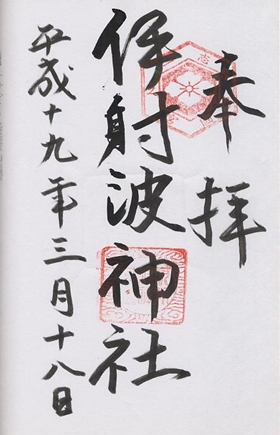 奉拝
伊射波神社
平成十九年三月十八日